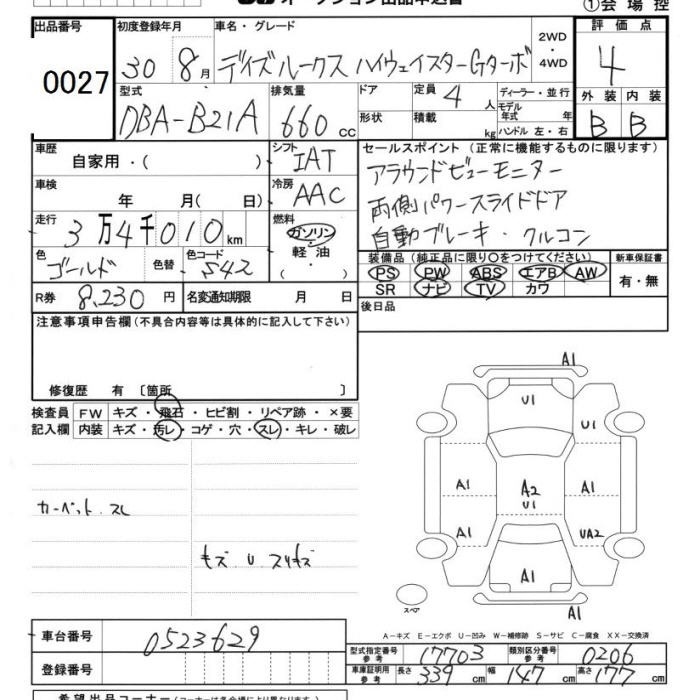 オークション出品申込書
①会場控
出品番号
0027
初度登録年月
30 8月
車名・グレード
デイズルークス ハイウェイスターGターボ
2WD
・
4WD
評価点
4
外装 内装
B B
型式
DBA-B21A
排気量
660 cc
ドア
形状
定員 4 人
積載 kg
ディーラー・並行
モデル年式 年
ハンドル 左・右
車歴
自家用・( )
シフト
IAT
車検
年 月( 日)
冷房
AAC
走行
3万4千010km
燃料
ガソリン
・
軽油
・
( )
色
ゴールド
色替
色コード
S42
R券 8,230 円
名変通知期限 月 日
セールスポイント (正常に機能するものに限ります)
アラウンドビューモニター
両側パワースライドドア
自動ブレーキ・クルコン
装備品(純正品に限り○をつけてください)
新車保証書
PS PW ABS エアB AW
SR ナビ TV カワ
有・無
後日品
注意事項申告欄(不具合内容等は具体的に記入して下さい)
修復歴 有 〔箇所 〕
検査員 FW キズ・飛石・ヒビ割・リペア跡・×要
記入欄 内装 キズ・汚レ・コゲ・穴・スレ・キレ・破レ
カーペット.スレ
キズ U スリキズ
A1
U1
A1 U1
A2
U1
A1 UA2
A1
A1
スペア
A-キズ E-エクボ U-凹み W-補修跡 S-サビ C-腐食 XX-交換済
車台番号 0523629
登録番号
型式指定番号 参考 17703 類別区分番号 参考 0206
車庫証明用 参考 長さ 339 cm 幅 147 cm 高さ 177 cm
希望出品コーナー